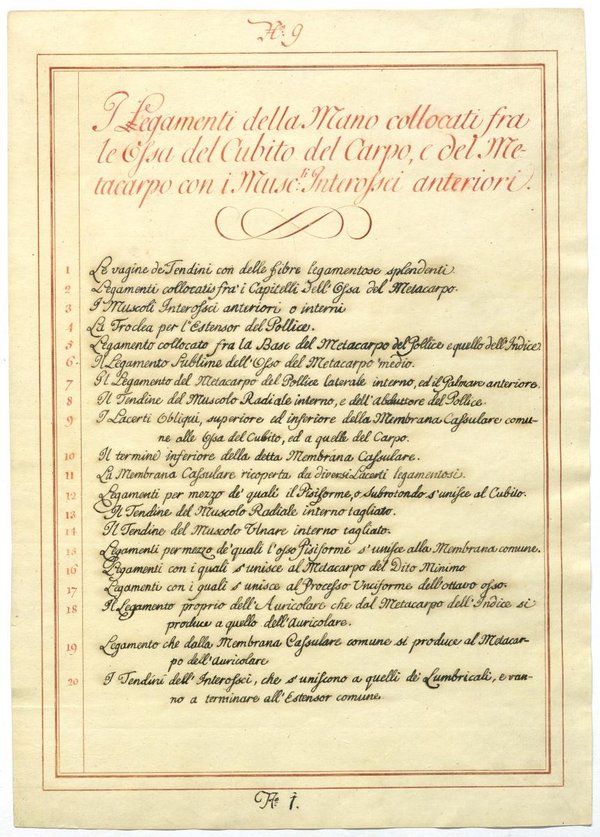 No. 9
I Legamenti della Mano collocati fra
le Ossa del Cubito del Carpo, e del Me-
tacarpo con i Musc.li Interossei anteriori.
1 Le vagine de Tendini con delle fibre legamentose splendenti.
2 Legamenti collocatis fra i Capitelli dell'Ossa del Metacarpo.
3 I Muscoli Interossei anteriori o interni
4 La Troclea per l'Estensor del Pollice.
5 Legamento collocato fra la Base del Metacarpo del Pollice e quello dell'Indice.
6 Il Legamento Sublime dell'Osso del Metacarpo medio.
7 Il Legamento del Metacarpo del Pollice laterale interno, ed il Palmare anteriore.
8 Il Tendine del Muscolo Radiale interno, e dell'Abduttore del Pollice.
9 I Lacerti Obliqui, superiore ed inferiore della Membrana Cassulare comu-
ne alle Ossa del Cubito, ed a quelle del Carpo.
10 Il termine inferiore della detta Membrana Cassulare.
11 La Membrana Cassulare ricoperta da diversi Lacerti legamentosi.
12 Legamenti per mezzo de' quali il Pisiforme, o subrotondo s'unisce al Cubito.
13 Il Tendine del Muscolo Radiale interno tagliato.
14 Il Tendine del Muscolo Ulnare interno tagliato.
15 Legamenti per mezzo de' quali l'osso Pisiforme s'unisce alla Membrana comune.
16 Legamenti con i quali s'unisce al Metacarpo del Dito Minimo
17 Legamenti con i quali s'unisce al Processo Unciforme dell'ottavo osso.
18 Il Legamento proprio dell'Auricolare che dal Metacarpo dell'Indice si
produce a quello dell'Auricolare.
19 Legamento che dalla Membrana Cassulare comune si produce al Metacar-
po dell'Auricolare
20 I Tendini dell'Interossei, che s'uniscono a quelli de' Lumbricali, e van-
no a terminare all'Estensor comune
No. 1.